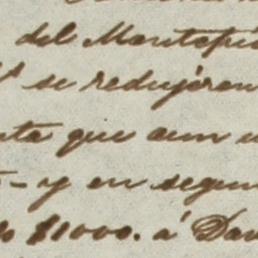 del Montepí
se redujéron
que aun
y en segun
$1000. á Dav